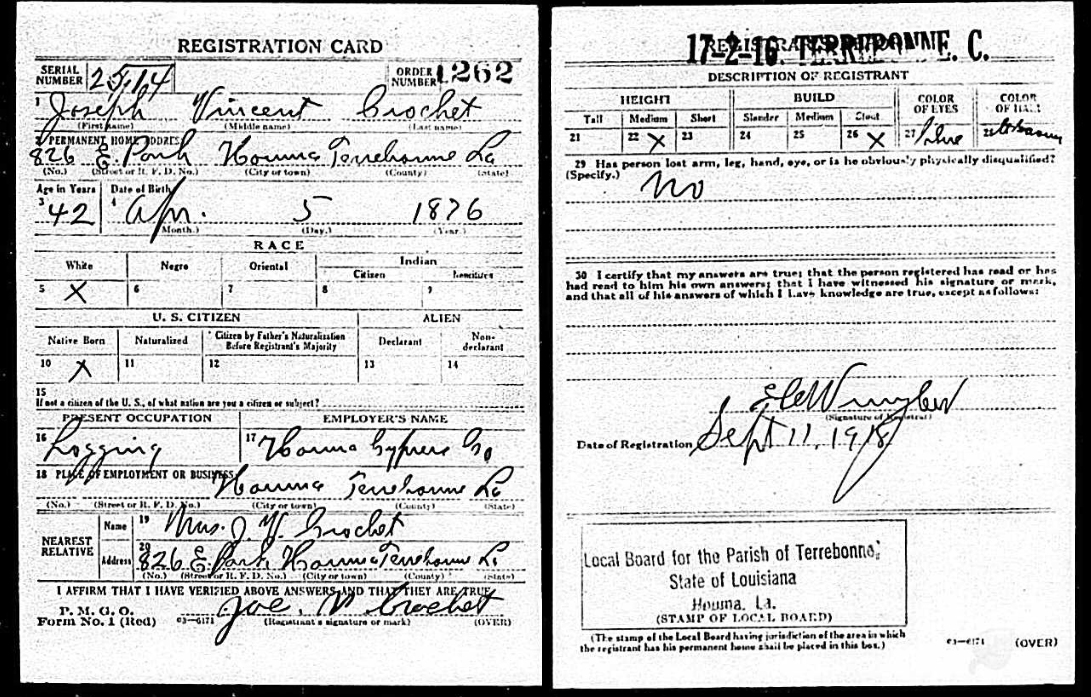 REGISTRATION CARD
SERIAL NUMBER 2514 ORDER NUMBER 1262
1 Joseph Vincent Crochet
(First name) (Middle name) (Last name)
2 PERMANENT HOME ADDRESS
826 E. Park Houma Terrebonne La
(No.) (Street or R. F. D. No.) (City or town) (County) (State)
Age in Years Date of Birth
3 42 4 Apr. 5 1876
(Month.) (Day.) (Year.)
RACE
White Negro Oriental Indian
Citizen Noncitizen
5 X 6 7 8 9
U. S. CITIZEN ALIEN
Native Born Naturalized Citizen by Father's Naturalization Before Registrant's Majority Declarant Non-declarant
10 X 11 12 13 14
15
If not a citizen of the U. S., of what nation are you a citizen or subject?
PRESENT OCCUPATION EMPLOYER'S NAME
16 Logging 17 Houma Cypress Co
18 PLACE OF EMPLOYMENT OR BUSINESS
Houma Terrebonne La
(No.) (Street or R. F. D. No.) (City or town) (County) (State)
NEAREST RELATIVE
Name 19 Mrs. J. V. Crochet
Address 20 826 E. Park Houma Terrebonne La
(No.) (Street or R. F. D. No.) (City or town) (County) (State)
I AFFIRM THAT I HAVE VERIFIED ABOVE ANSWERS AND THAT THEY ARE TRUE
P. M. G. O.
Form No. 1 (Red) 03—6171 Joe. V Crochet
(Registrant's signature or mark) (OVER)
17-2-16 TERREBONNE. C.
DESCRIPTION OF REGISTRANT
HEIGHT BUILD COLOR OF EYES COLOR OF HAIR
Tall Medium Short Slender Medium Stout
21 22 X 23 24 25 26 X 27 Blue 28
29 Has person lost arm, leg, hand, eye, or is he obviously physically disqualified?
(Specify.) No
30 I certify that my answers are true; that the person registered has read or has
had read to him his own answers; that I have witnessed his signature or mark,
and that all of his answers of which I have knowledge are true, except as follows:
(Signature of Registrar)
Date of Registration Sept 11, 1918
Local Board for the Parish of Terrebonne,
State of Louisiana
Houma, La.
(STAMP OF LOCAL BOARD)
(The stamp of the Local Board having jurisdiction of the area in which
the registrant has his permanent home shall be placed in this box.)
03—6171 (OVER)